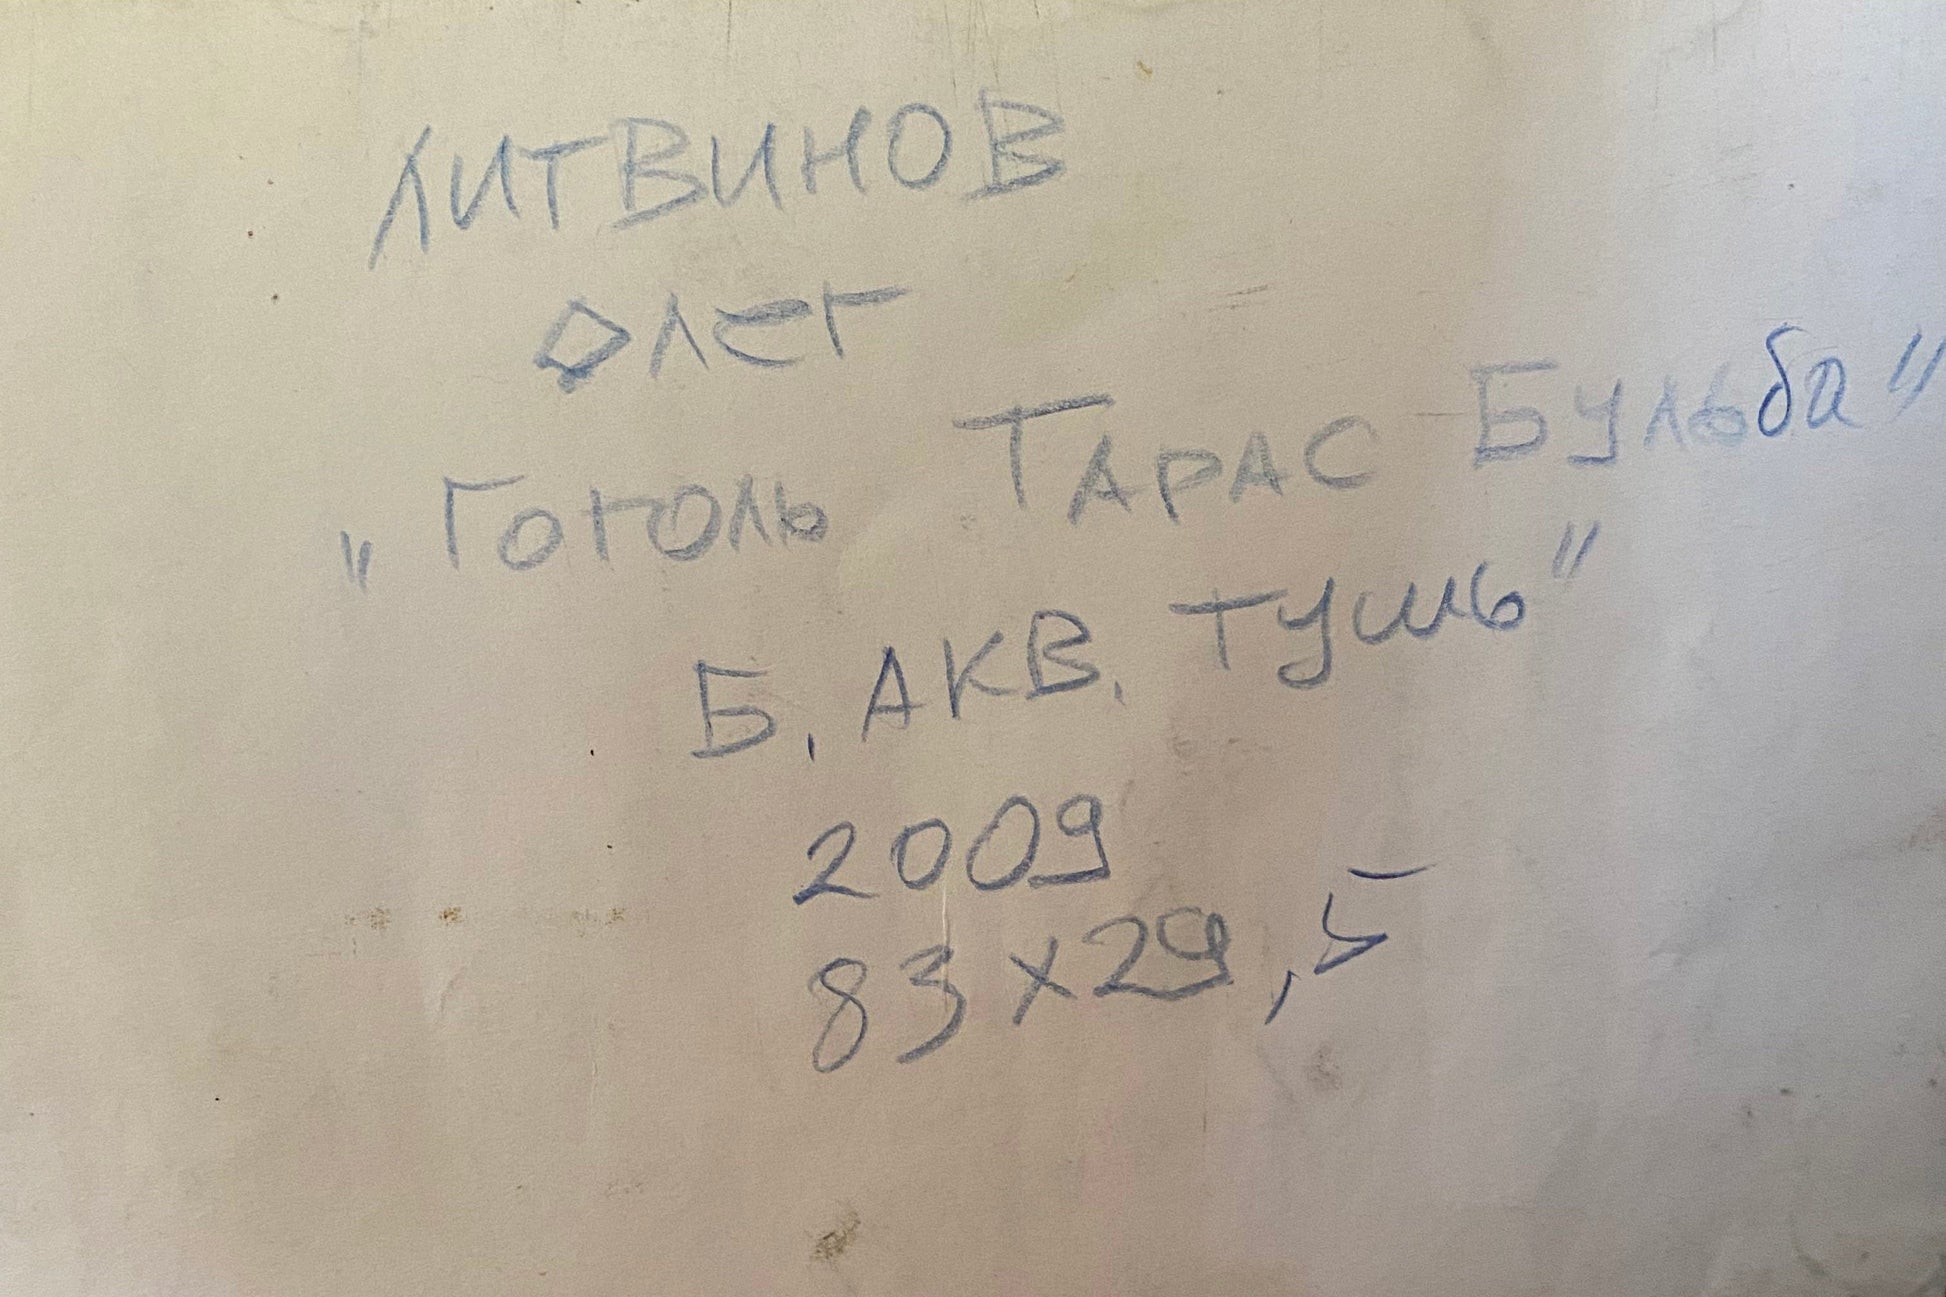 ЛИТВИНОВ
ОЛЕГ
"Гоголь ТАРАС Бульба"
Б. АКВ. ТУШЬ"
2009
83х29,5